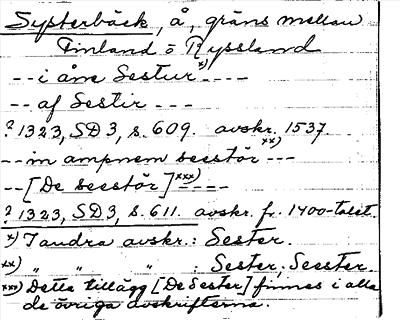 Systerbäck, å, gräns mellan
Finland o Ryssland
-- i åne Sestur x) ----
-- af Sestir ---
? 1323, SD 3, s. 609. avskr. 1537.
-- in ampnem seestör xx) ---
-- [De seestör] xxx) ----
? 1323, SD 3, s. 611. avskr. fr. 1400-talet.
x) I andra avskr.: Sester.
xx) " " " : Sester, Seester.
xxx) Detta tillägg [De Sester] finnes i alla
de övriga avskrifterna.